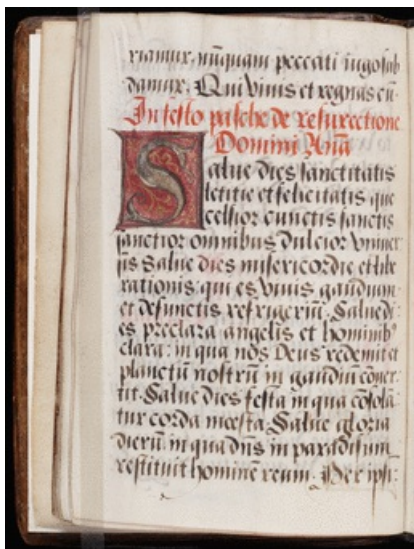 riamur, nūquam peccati iugo sub
damur. Qui vivis et regnas cū
In festo pasche de resurrectione
Domini Anā
Salve dies sanctitatis
letitie et felicitatis que
celsior cunctis sanctis
sanctior omnibus dulcior univer
sis Salve dies misericordie et libe
rationis qui es vivis gaudium
et defunctis refrigeriū. Salve di
es preclara angelis et hominib9
clara: in qua nos Deus redemit et
planctū nostrū in gaudiū cōver
tit. Salve dies festa in qua cōsolā
tur corda mesta Salve gloria
dierū in qua dn̄s in paradisum
restituit hominē reum. Per ipsū: